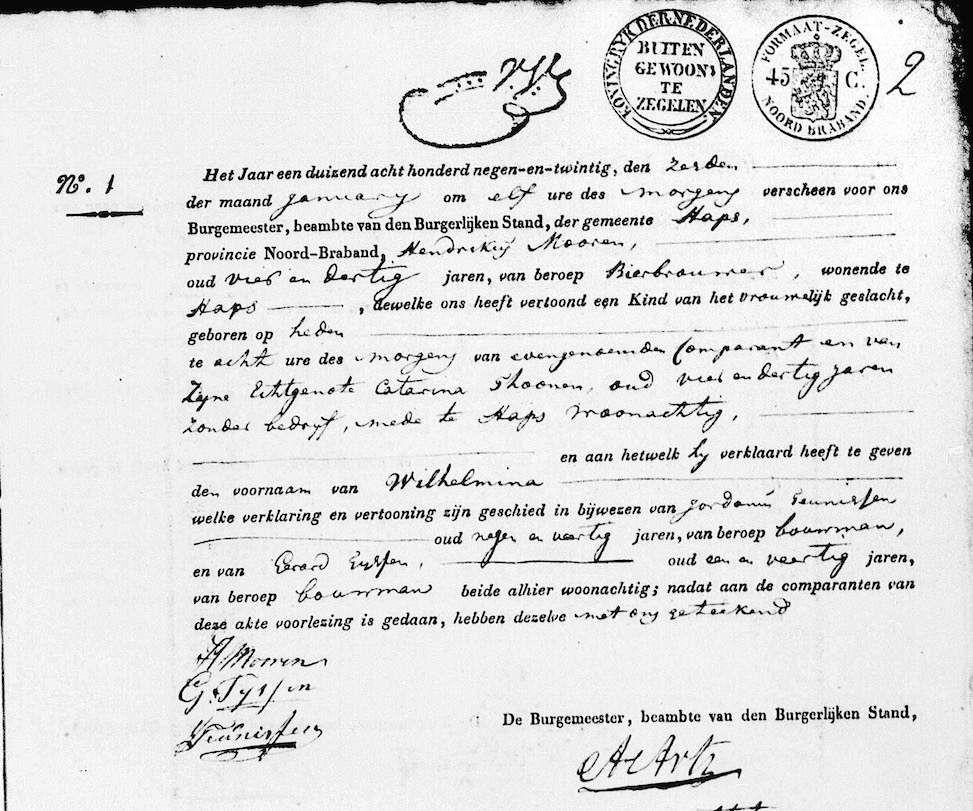 KONINGRYK DER NEDERLANDEN.
BUITEN
GEWOON
TE
ZEGELEN
FORMAAT-ZEGEL.
45 C.
NOORD BRABAND.
2
N.º 1
Het Jaar een duizend acht honderd negen-en-twintig, den zesden
der maand January om elf ure des morgens verscheen voor ons
Burgemeester, beambte van den Burgerlijken Stand, der gemeente Haps,
provincie Noord-Braband, Hendrikus Mooren,
oud vier en dertig jaren, van beroep Bierbrouwer, wonende te
Haps, dewelke ons heeft vertoond een Kind van het vrouwelijk geslacht,
geboren op heden
te acht ure des morgens van evengenoemden Comparant en van
Zijne Echtgenote Catarina Thoonen, oud vier en dertig jaren
zonder bedrijf, mede te Haps woonachtig,
en aan hetwelk hy verklaard heeft te geven
den voornaam van Wilhelmina
welke verklaring en vertooning zijn geschied in bijwezen van Jordanus Teunissen
oud negen en veertig jaren, van beroep bouwman,
en van Gerard Tyssen, oud een en veertig jaren,
van beroep bouwman beide alhier woonachtig; nadat aan de comparanten van
deze akte voorlezing is gedaan, hebben dezelve met ons geteekend
H Mooren
G. Tyssen
Teunissen
De Burgemeester, beambte van den Burgerlijken Stand,